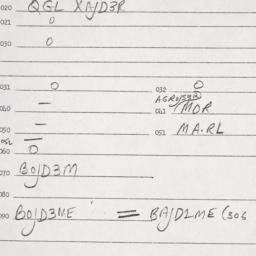 020 QGL XA/D3R
021 0
030 0
031 0 032 0
040 — 041 /MDR
050 — 051 MA.RL
052 —
060 0
070 BOJD3M
080
090 BOJD3ME = BAJD1ME (306